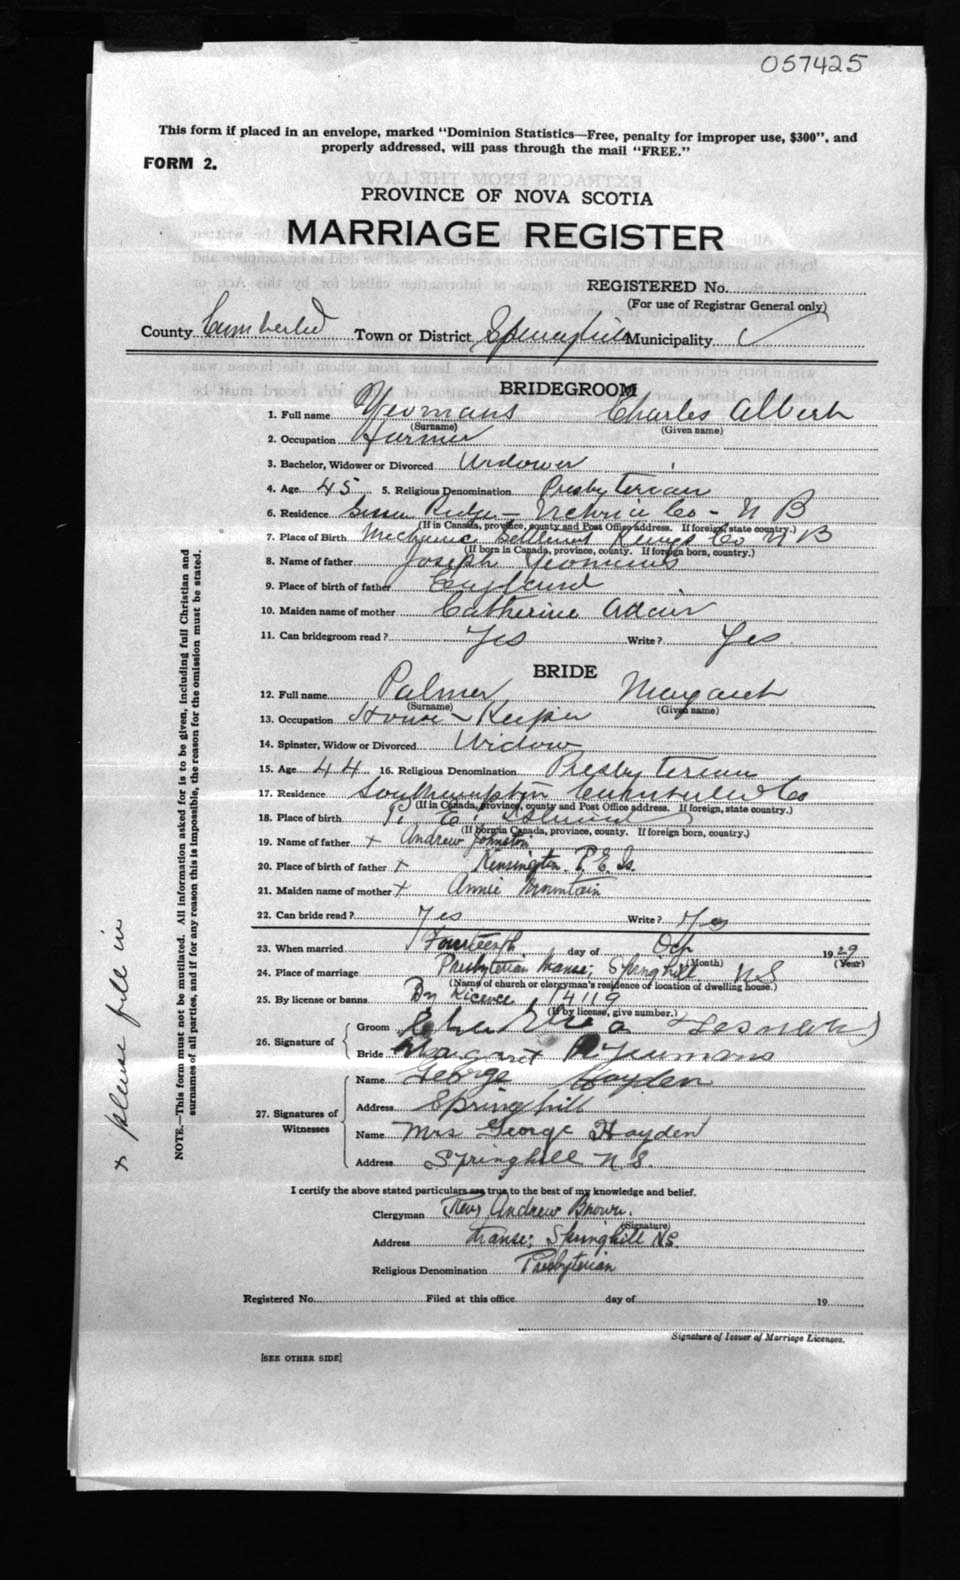 057425
This form if placed in an envelope, marked "Dominion Statistics—Free, penalty for improper use, $300", and
properly addressed, will pass through the mail "FREE."
FORM 2.
PROVINCE OF NOVA SCOTIA
MARRIAGE REGISTER
REGISTERED No.
(For use of Registrar General only)
County Cumberland Town or District Springhill Municipality
BRIDEGROOM
1. Full name Yeomans Charles Albert
(Surname) (Given name)
2. Occupation Farmer
3. Bachelor, Widower or Divorced Widower
4. Age 45 5. Religious Denomination Presbyterian
6. Residence Ridge - Victoria Co - N B
(If in Canada, province, county and Post Office address. If foreign, state country.)
7. Place of Birth Mechanic Settlement Kings Co N B
(If born in Canada, province, county. If foreign born, country.)
8. Name of father Joseph Yeomans
9. Place of birth of father England
10. Maiden name of mother Catherine Adair
11. Can bridegroom read? Yes Write? Yes
BRIDE
12. Full name Palmer Margaret
(Surname) (Given name)
13. Occupation House-Keeper
14. Spinster, Widow or Divorced Widow
15. Age 44 16. Religious Denomination Presbyterian
17. Residence Southampton Cumberland Co
(If in Canada, province, county and Post Office address. If foreign, state country.)
18. Place of birth P. E. Island
(If born in Canada, province, county. If foreign born, country.)
19. Name of father + Andrew Johnston
20. Place of birth of father + Kensington. P.E. Is.
21. Maiden name of mother + Annie Mountain
22. Can bride read? Yes Write? Yes
23. When married Fourteenth day of Oct 1929
(Month) (Year)
24. Place of marriage Presbyterian Manse; Springhill NS
(Name of church or clergyman's residence or location of dwelling house.)
25. By license or banns By Licence 14119
(If by license, give number.)
26. Signature of Groom
Bride Margaret Yeumans
27. Signatures of Witnesses
Name George Hayden
Address Springhill
Name Mrs George Hayden
Address Springhill N S.
I certify the above stated particulars are true to the best of my knowledge and belief.
Clergyman Rev Andrew Brown.
(Signature)
Address Manse; Springhill NS.
Religious Denomination Presbyterian
Registered No. Filed at this office day of 19
Signature of Issuer of Marriage Licenses.
[SEE OTHER SIDE]
NOTE.—This form must not be mutilated. All information asked for is to be given, including full Christian and
surnames of all parties, and if for any reason this is impossible, the reason for the omission must be stated.
+ please fill in